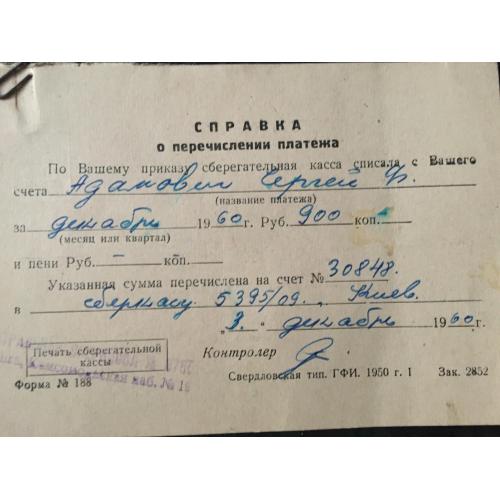 СПРАВКА
о перечислении платежа
По Вашему приказу сберегательная касса списала с Вашего
счета Адамович Сергей Ф.
(название платежа)
за декабрь 1960 г. Руб. 900 коп.
(месяц или квартал)
и пени Руб. — коп.
Указанная сумма перечислена на счет № 30848.
в сберкассу 5395/09, Киев.
"3" декабрь 1960 г.
Печать сберегательной
кассы
Контролер
наб. № 16
Форма № 188
Свердловская тип. ГФИ. 1950 г. I Зак. 2852